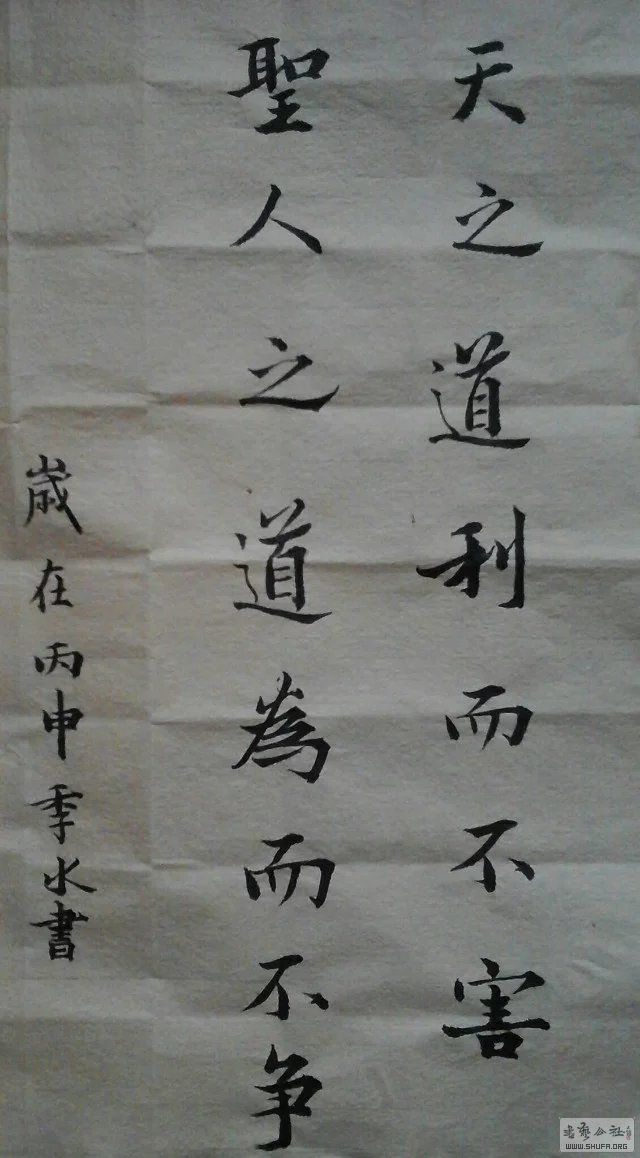 天之道利而不害
聖人之道為而不争
歳在丙申季水書
WWW.SHUFA.ORG